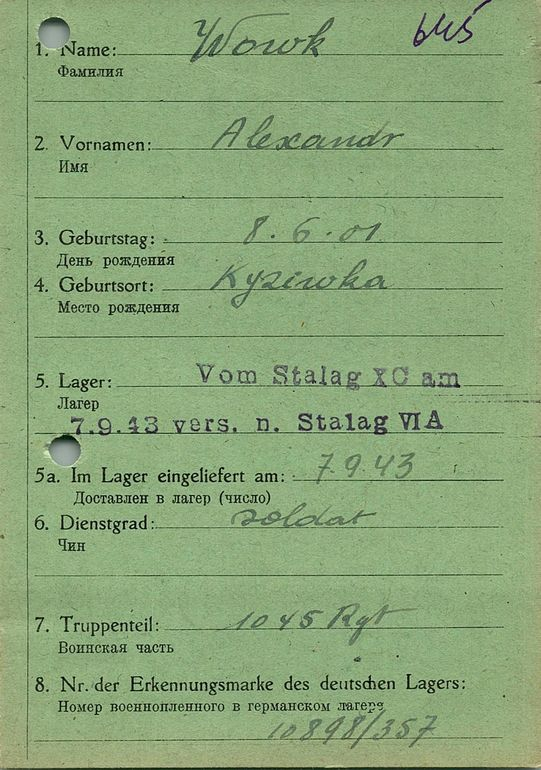 645
1. Name: Wowk
Фамилия
2. Vornamen: Alexandr
Имя
3. Geburtstag: 8. 6. 01
День рождения
4. Geburtsort: Kyziwka
Место рождения
5. Lager: Vom Stalag XC am
Лагер
7.9.43 vers. n. Stalag VIA
5a. Im Lager eingeliefert am: 7.9.43
Доставлен в лагер (число)
6. Dienstgrad: soldat
Чин
7. Truppenteil: 1045 Rgt
Воинская часть
8. Nr. der Erkennungsmarke des deutschen Lagers:
Номер военнопленного в германском лагере
10898/357